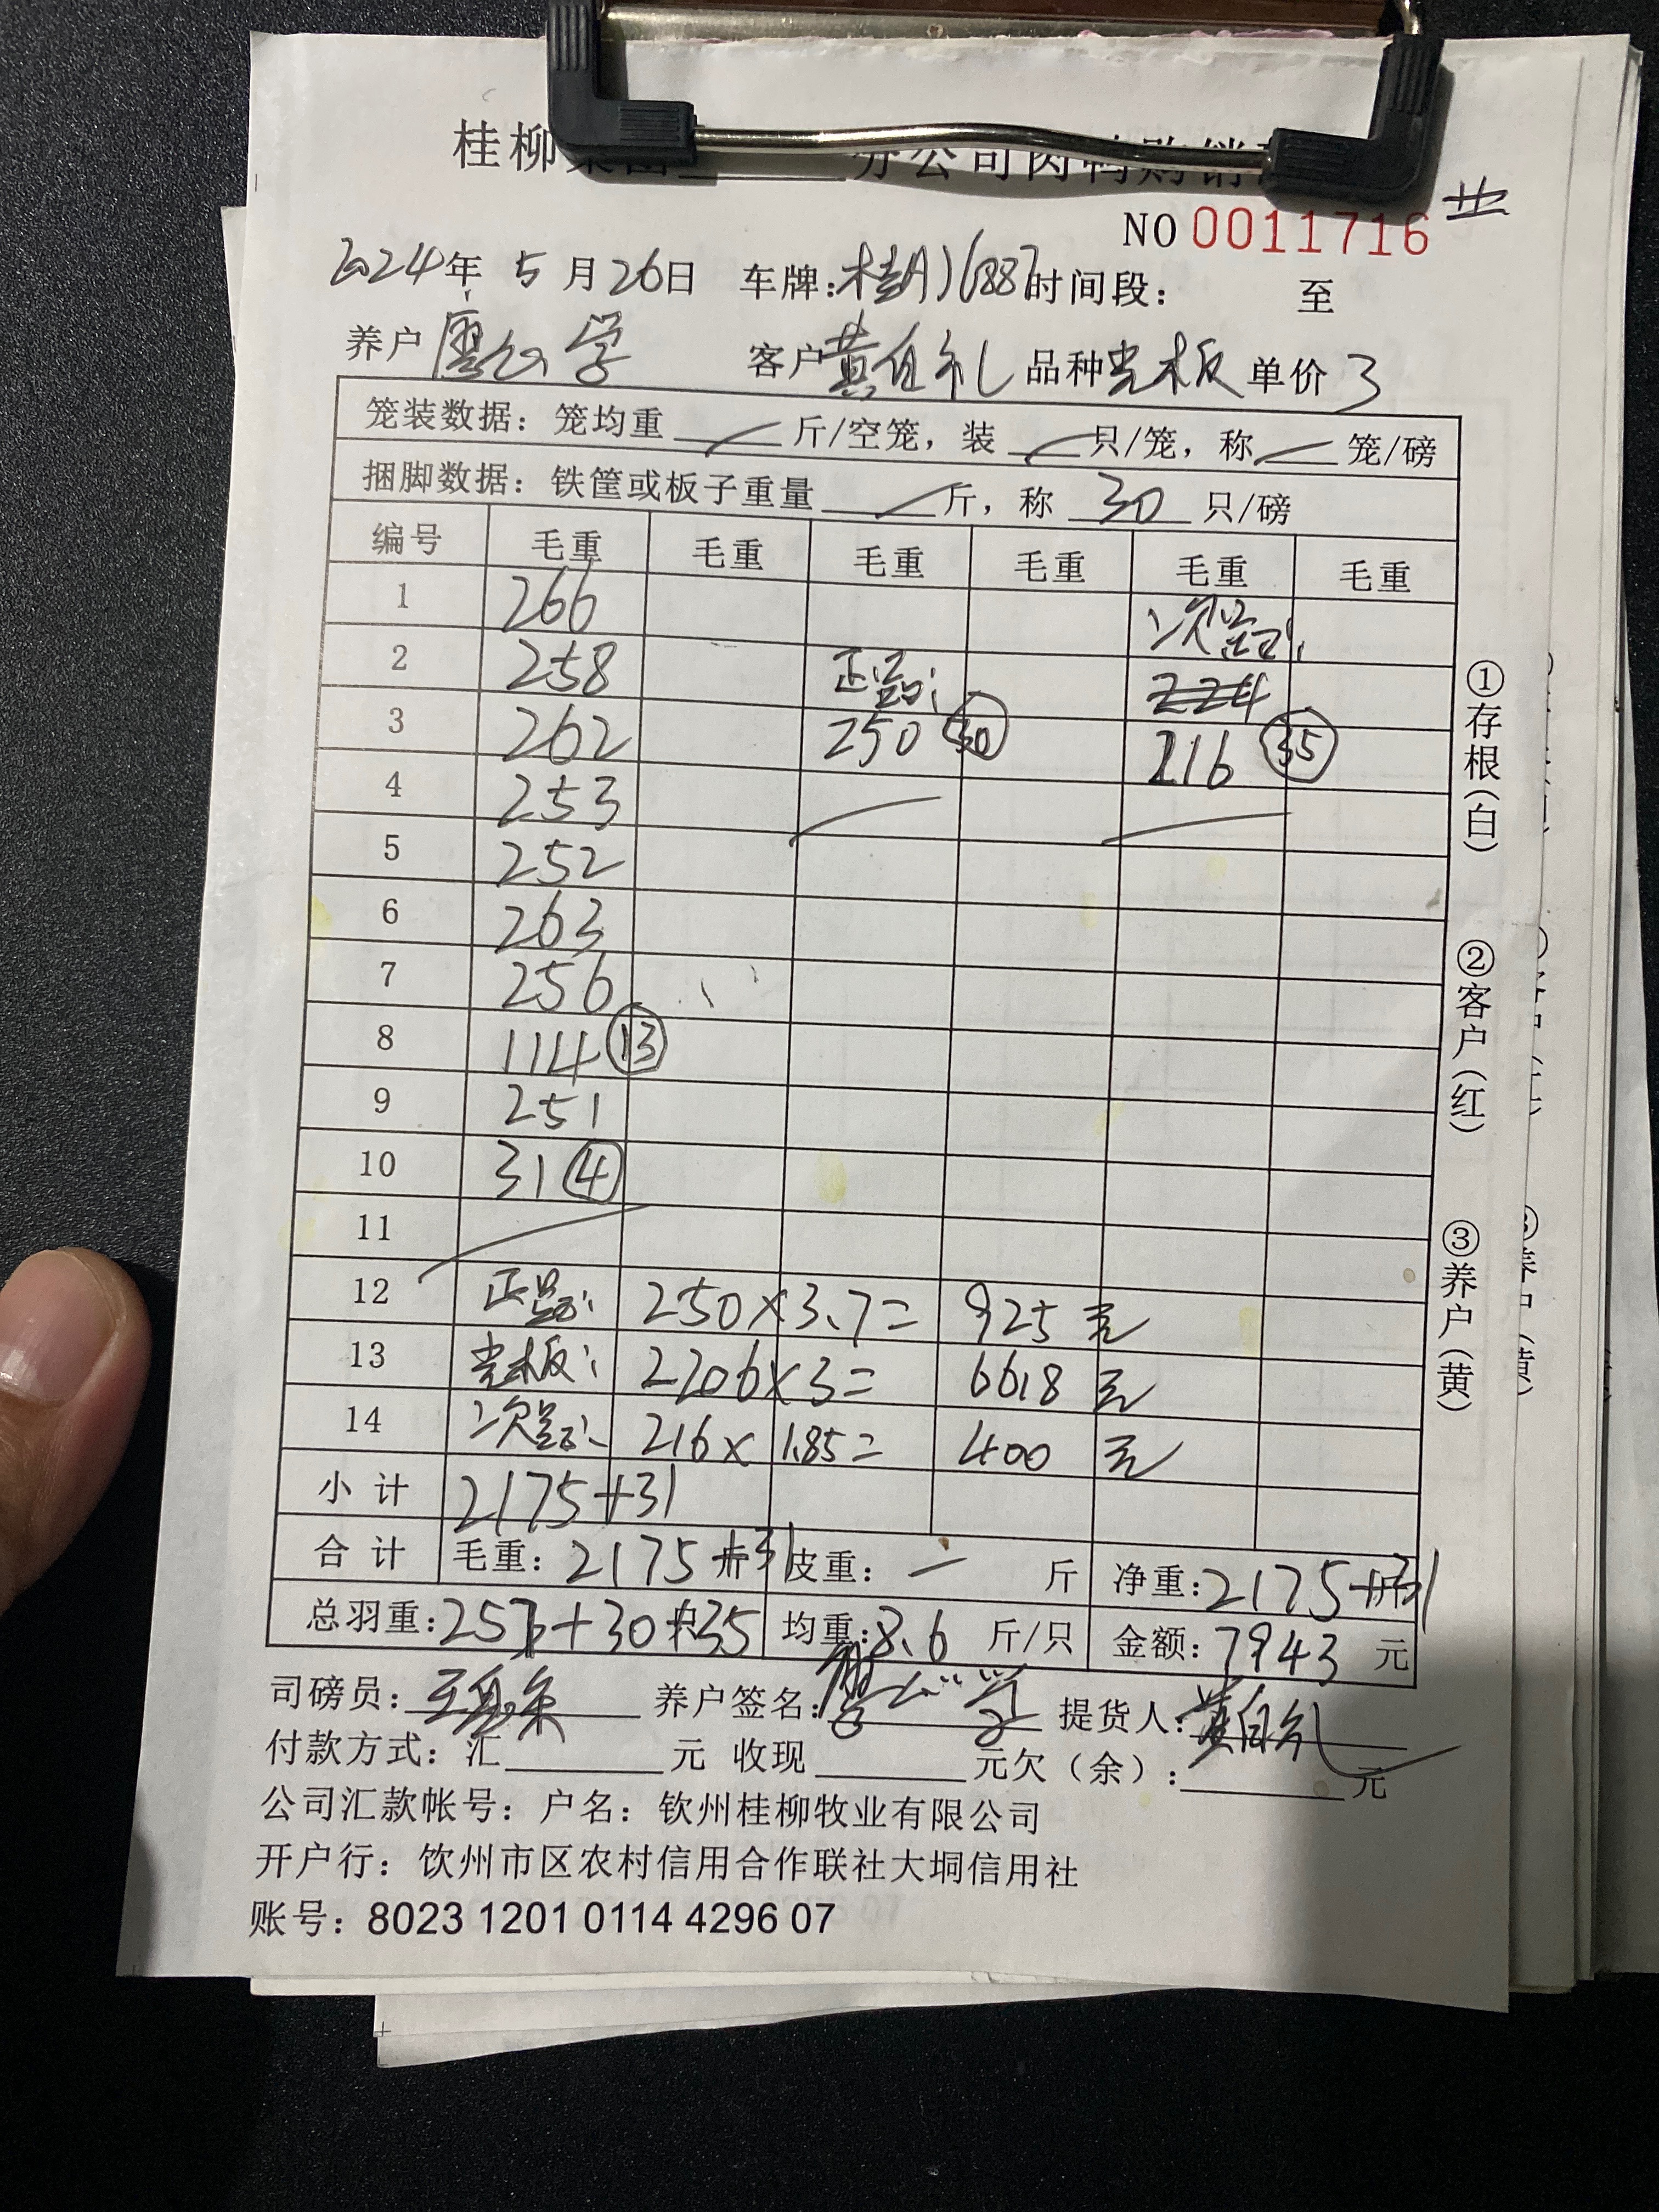 桂柳集团 分公司肉鸭购销
NO 0011716
2024年 5月26日 车牌: 时间段: 至
养户 学 客户 黄自礼 品种 光木板 单价 3
笼装数据: 笼均重 斤/空笼, 装 只/笼, 称 笼/磅
捆脚数据: 铁筐或板子重量 斤, 称 30 只/磅
编号 毛重 毛重 毛重 毛重 毛重 毛重
1 266 次品:
2 258 正品:
3 262 250 30 216 35
4 253
5 252
6 263
7 256
8 114 13
9 251
10 31 4
11
12 正品: 250×3.7= 925 元
13 光木板: 2206×3= 6618 元
14 次品: 216× 1.85= 400 元
小计 2175+31
合计 毛重: 2175+31 斤 皮重: 一 斤 净重: 2175+31 斤
总羽重: +30+35 只 均重: 8.6 斤/只 金额: 7943 元
司磅员: 养户签名: 学 提货人: 黄自礼
付款方式: 汇 元 收现 元 欠(余): 元
公司汇款帐号: 户名: 钦州桂柳牧业有限公司
开户行: 钦州市区农村信用合作联社大垌信用社
账号: 8023 1201 0114 4296 07
①存根(白)
②客户(红)
③养户(黄)